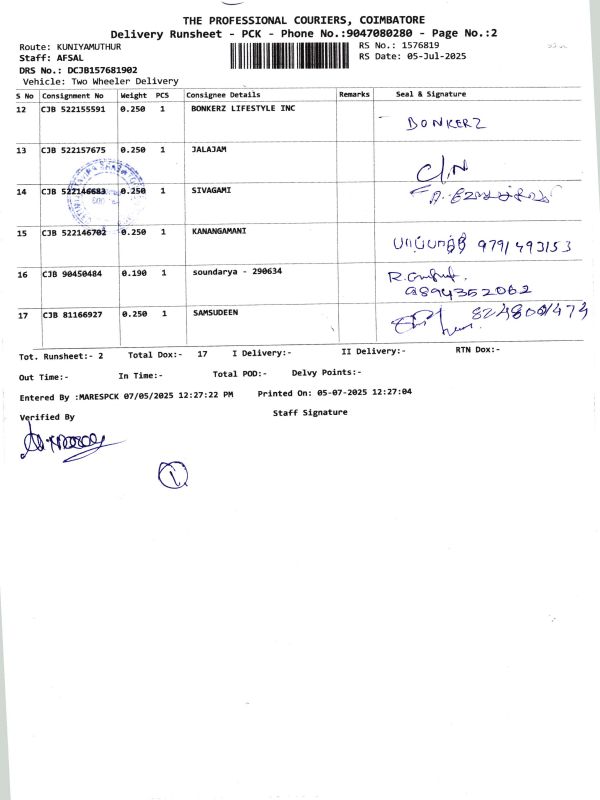 THE PROFESSIONAL COURIERS, COIMBATORE
Delivery Runsheet - PCK - Phone No.:9047080280 - Page No.:2
Route: KUNIYAMUTHUR
RS No.: 1576819
Staff: AFSAL
RS Date: 05-Jul-2025
DRS No.: DCJB157681902
Vehicle: Two Wheeler Delivery
S No Consignment No Weight PCS Consignee Details Remarks Seal & Signature
12 CJB 522155591 0.250 1 BONKERZ LIFESTYLE INC BONKERZ
13 CJB 522157675 0.250 1 JALAJAM C/N
14 CJB 522146683 0.250 1 SIVAGAMI
15 CJB 522146702 0.250 1 KANANGAMANI பாப்பாத்தி 9791493153
16 CJB 90450484 0.190 1 soundarya - 290634 9894352062
17 CJB 81166927 0.250 1 SAMSUDEEN
Tot. Runsheet:- 2 Total Dox:- 17 I Delivery:- II Delivery:- RTN Dox:-
Out Time:- In Time:- Total POD:- Delvy Points:-
Entered By :MARESPCK 07/05/2025 12:27:22 PM Printed On: 05-07-2025 12:27:04
Verified By Staff Signature
1